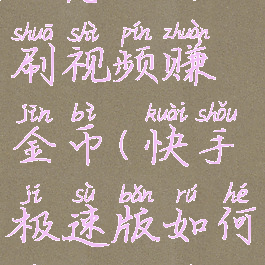 shuā shì pín zhuàn
刷视频赚
jīn bì kuài shǒu
金币(快手
jí sù bǎn rú hé
极速版如何